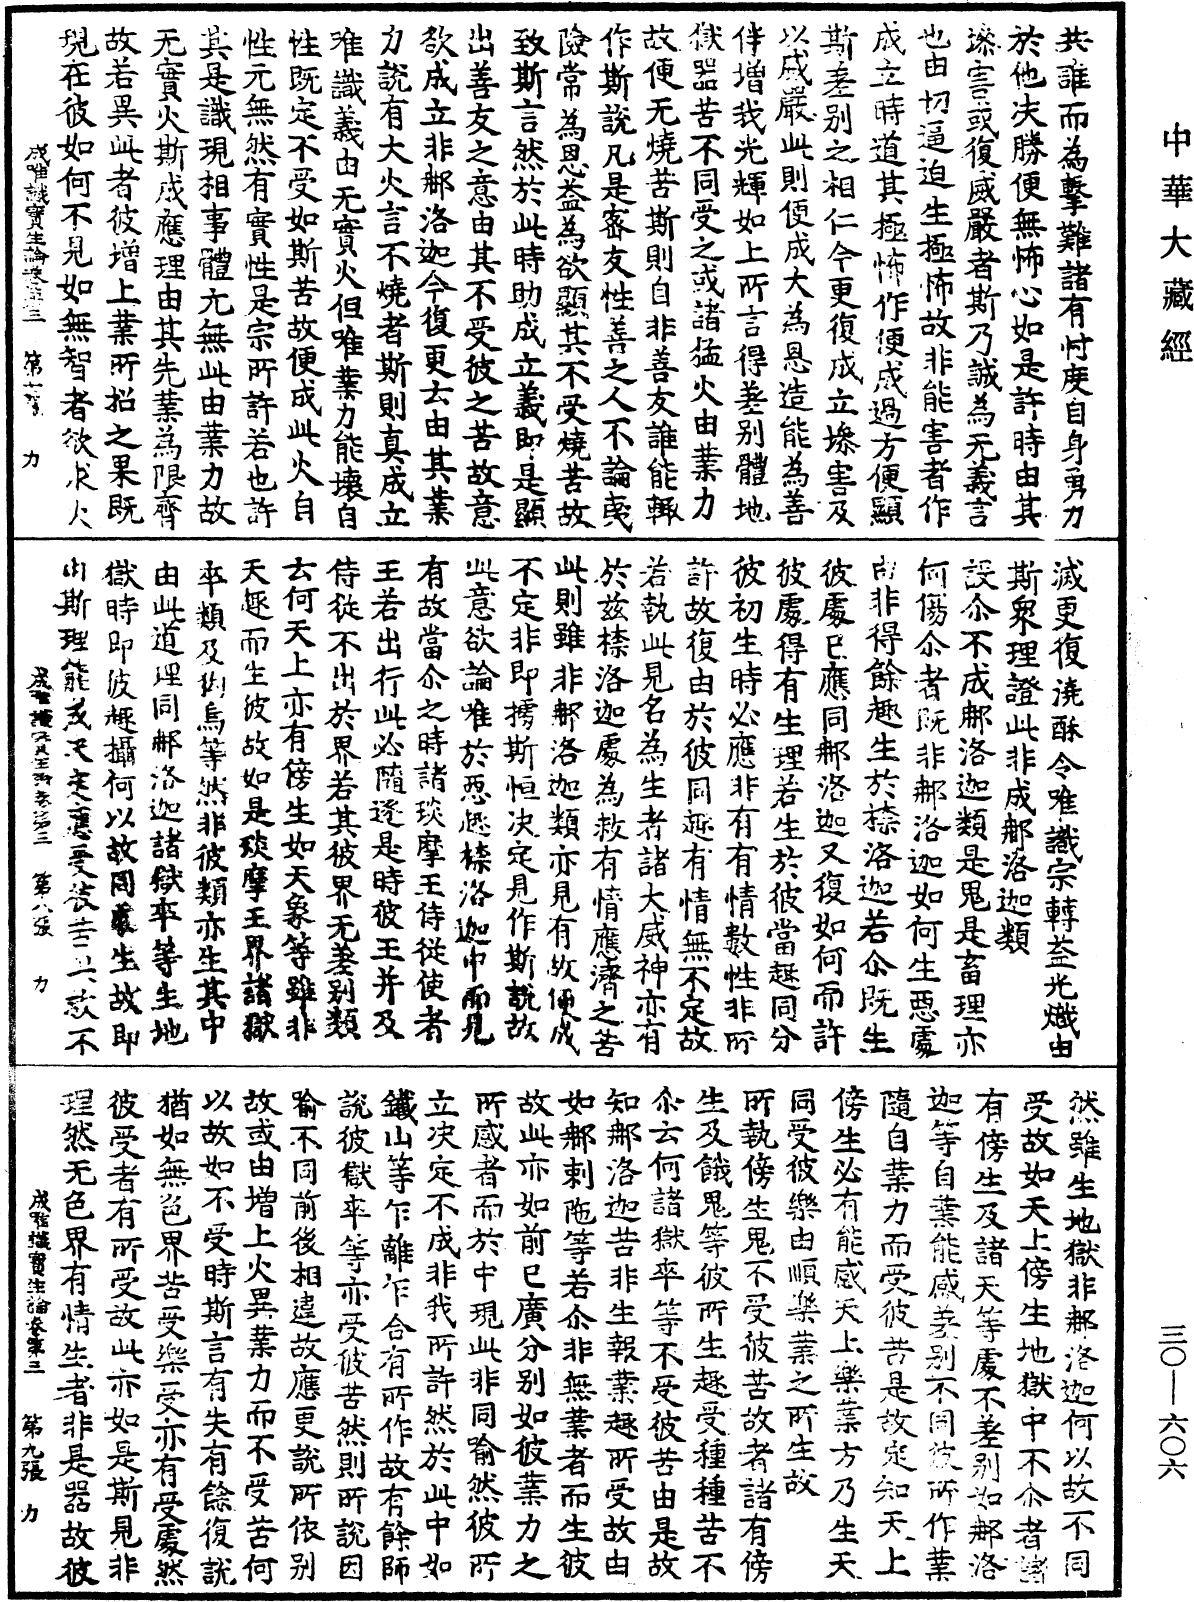 中華大藏經
共誰而為擊難諸有忖度自身勇力
於他決勝便無怖心如是許時由其
墋害或復威嚴者斯乃誠為无義言
也由切逼迫生極怖故非能害者作
成立時道其極怖作便成過方便顯
斯差別之相仁今更復成立墋害及
以威嚴此則便成大為恩造能為善
伴增我光輝如上所言得差別體地
獄器苦不同受之或諸猛火由業力
故便无燒苦斯則自非善友誰能輙
作斯說凡是密友性善之人不論夷
險常為恩益為欲顯其不受燒苦故
致斯言然於此時助成立義即是顯
出善友之意由其不受彼之苦故意
欲成立非𨙻洛迦今復更云由其業
力說有大火言不燒者斯則真成立
唯識義由无實火但唯業力能壞自
性既定不受如斯苦故便成此火自
性元無然有實性是宗所許若也許
其是識現相事體元無此由業力故
无實火斯成應理由其先業為限齊
故若異此者彼增上業所招之果既
現在彼如何不見如無智者欲求火
成唯識寶生論卷第三　第七張　力
滅更復澆酥今唯識宗轉益光熾由
斯眾理證此非成𨙻洛迦類
設尒不成𨙻洛迦類是鬼是畜理亦
何傷尒者既非𨙻洛迦如何生惡處
由非得餘趣生於㮈洛迦若尒既生
彼處已應同𨙻洛迦又復如何而許
彼處得有生理若生於彼當趣同分
彼初生時必應非有有情數性非所
許故復由於彼同趣有情無不定故
若執此見名為生者諸大威神亦有
於兹㮈洛迦處為救有情應濟之苦
此則雖非𨙻洛迦類亦見有故便成
不定非即擩斯恒決定見作斯說故
此意欲論唯於惡趣㮈洛迦中而見
有故當尒之時諸琰摩王侍從使者
王若出行此必隨逐是時彼王并及
侍從不出於界若其彼界无差別類
云何天上亦有傍生如天象等雖非
天趣而生彼故如是琰摩王界諸獄
卒類及狗烏等然非彼類亦生其中
由此道理同𨙻洛迦諸獄卒等生地
獄時即彼趣攝何以故同處生故即
由斯理能成決定應受彼苦此救不
成唯識寶生論卷第三　第八張　力
然雖生地獄非𨙻洛迦何以故不同
受故如天上傍生地獄中不尒者諸
有傍生及諸天等處不差別如𨙻洛
迦等自業能感差別不同彼所作業
隨自業力而受彼苦是故定知天上
傍生必有能感天上樂業方乃生天
同受彼樂由順樂業之所生故
所執傍生鬼不受彼苦故者諸有傍
生及餓鬼等彼所生趣受種種苦不
尒云何諸獄卒等不受彼苦由是故
知𨙻洛迦苦非生報業趣所受故由
如𨙻剌陁等若尒非無業者而生彼
故此亦如前已廣分別如彼業力之
所感者而於中現此非同喻然彼所
立決定不成非我所許然於此中如
鐵山等乍離乍合有所作故有餘師
說彼獄卒等亦受彼苦然則所說因
喻不同前後相違故應更說所依別
故或由增上火異業力而不受苦何
以故如不受時斯言有失有餘復說
猶如無色界苦受樂受亦有受處然
彼受者有所受故此亦如是斯見非
理然无色界有情生者非是器故彼
成唯識寶生論卷第三　第九張　力
三〇—六〇六